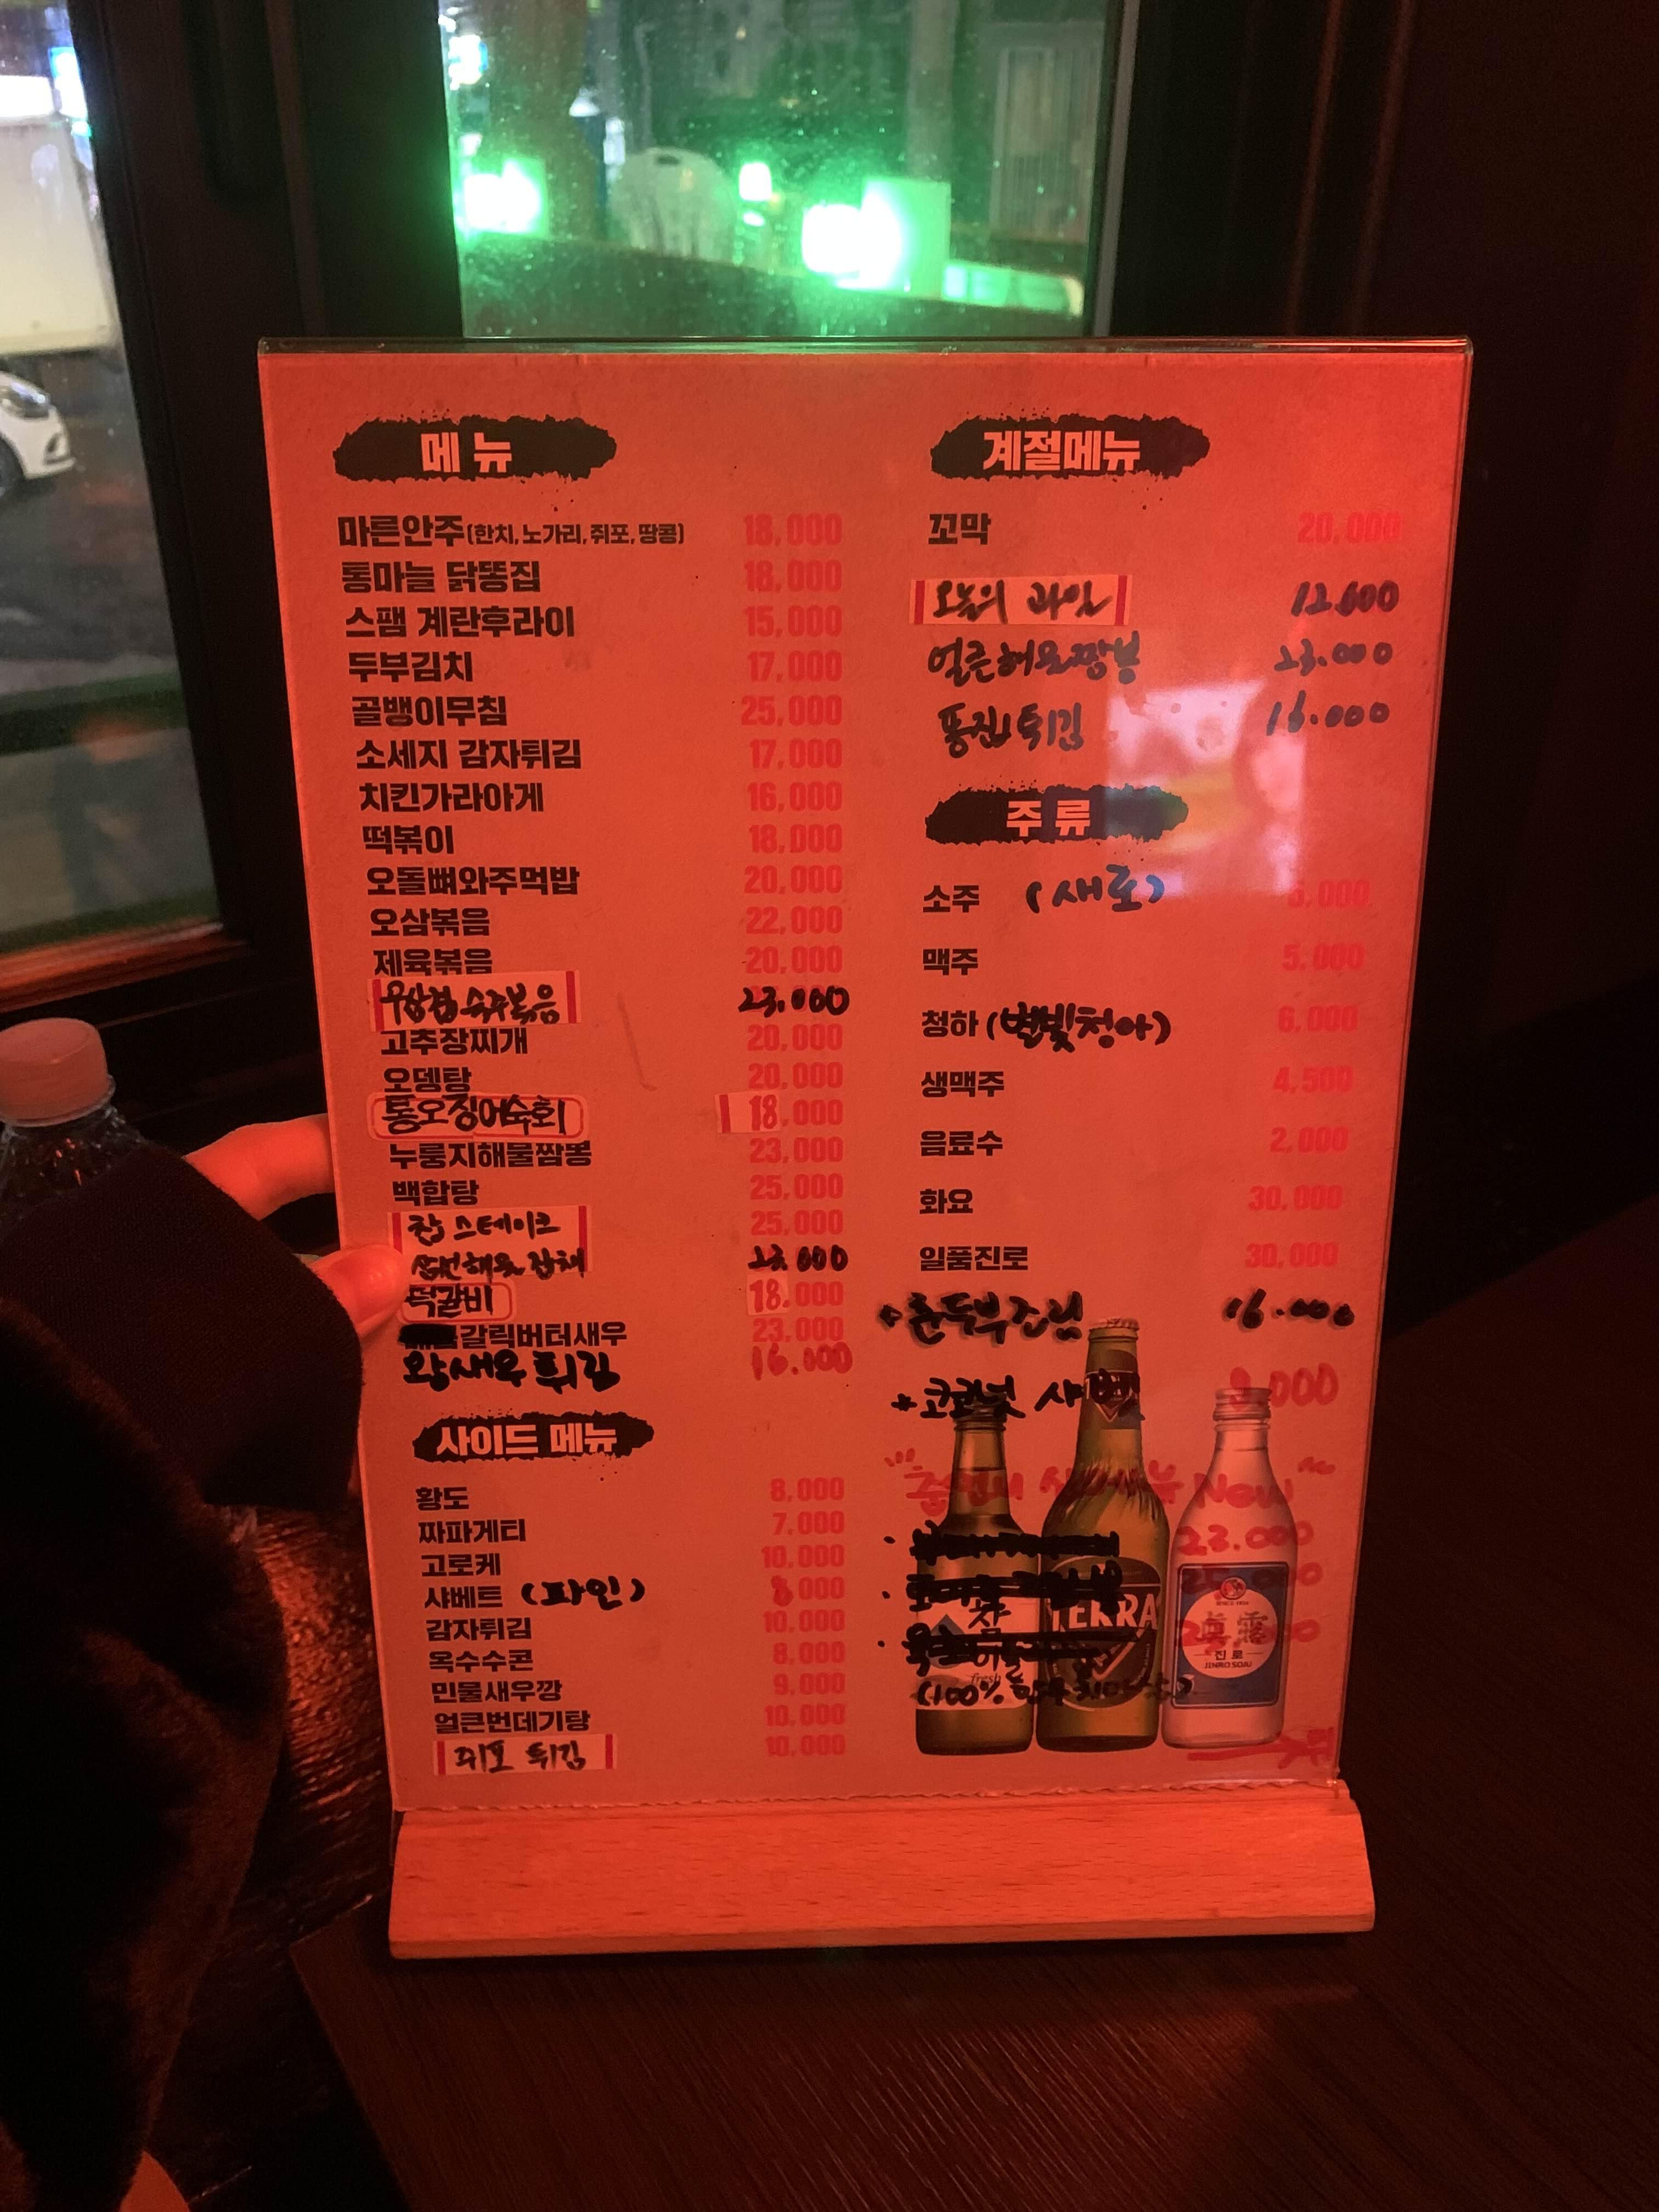 메뉴
마른안주(한치, 노가리, 쥐포, 땅콩) 18,000
통마늘 닭똥집 18,000
스팸 계란후라이 15,000
두부김치 17,000
골뱅이무침 25,000
소세지 감자튀김 17,000
치킨가라아게 16,000
떡볶이 18,000
오돌뼈와주먹밥 20,000
오삼볶음 22,000
제육볶음 20,000
우삼겹 숙주볶음 23.000
고추장찌개 20,000
오뎅탕 20,000
통오징어숙회 18,000
누룽지해물짬뽕 23,000
백합탕 25,000
찹 스테이크 25,000
해물잡채 23.000
떡갈비 18.000
갈릭버터새우 23,000
왕새우 튀김 16.000
사이드 메뉴
황도 8,000
짜파게티 7,000
고로케 10,000
샤베트 (파인) 8,000
감자튀김 10,000
옥수수콘 8,000
민물새우깡 9,000
얼큰번데기탕 10,000
쥐포 튀김 10,000
계절메뉴
꼬막 20,000
오늘의 과일 12.000
얼큰해물짬뽕 23.000
튀김 16.000
주류
소주 (새로) 5,000
맥주 5,000
청하 (별빛청하) 6,000
생맥주 4,500
음료수 2,000
화요 30,000
일품진로 30,000
+ 두부조림 16.000
+ 코코넛 샤베트 8.000
New
23.000
TERRA
fresh
眞露
진로
JINRO SOJU
(100%